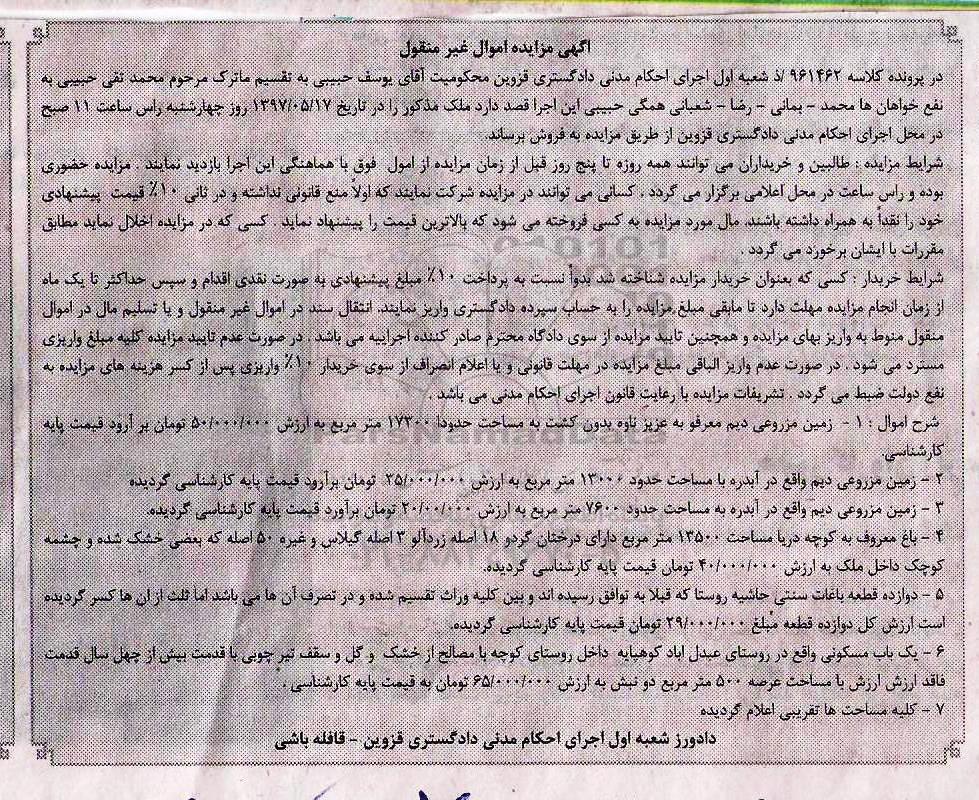 اگهی مزایده اموال غیر منقول
در پرونده کلاسه ۹۶۱۴۶۲ /ذ شعبه اول اجرای احکام مدنی دادگستری قزوین محکومیت آقای یوسف حبیبی به تقسیم ماترک مرحوم محمد تقی حبیبی به
نفع خواهان ها محمد – یمانی – رضا – شعبانی همگی حبیبی این اجرا قصد دارد ملک مذکور را در تاریخ ۱۳۹۷/۰۵/۱۷ روز چهارشنبه راس ساعت ۱۱ صبح
در محل اجرای احکام مدنی دادگستری قزوین از طریق مزایده به فروش برساند.
شرایط مزایده : طالبین و خریداران می توانند همه روزه تا پنج روز قبل از زمان مزایده از امول فوق با هماهنگی این اجرا بازدید نمایند . مزایده حضوری
بوده و راس ساعت در محل اعلامی برگزار می گردد . کسانی می توانند در مزایده شرکت نمایند که اولاً منع قانونی نداشته و در ثانی ۱۰٪ قیمت پیشنهادی
خود را نقداً به همراه داشته باشند. مال مورد مزایده به کسی فروخته می شود که بالاترین قیمت را پیشنهاد نماید . کسی که در مزایده اخلال نماید مطابق
مقررات با ایشان برخورد می گردد .
شرایط خریدار : کسی که بعنوان خریدار مزایده شناخته شد بدواً نسبت به پرداخت ۱۰٪ مبلغ پیشنهادی به صورت نقدی اقدام و سپس حداکثر تا یک ماه
از زمان انجام مزایده مهلت دارد تا مابقی مبلغ مزایده را به حساب سپرده دادگستری واریز نمایند. انتقال سند در اموال غیر منقول و یا تسلیم مال در اموال
منقول منوط به واریز بهای مزایده و همچنین تایید مزایده از سوی دادگاه محترم صادر کننده اجراییه می باشد . در صورت عدم تایید مزایده کلیه مبلغ واریزی
مسترد می شود . در صورت عدم واریز الباقی مبلغ مزایده در مهلت قانونی و یا اعلام انصراف از سوی خریدار ۱۰٪ واریزی پس از کسر هزینه های مزایده به
نفع دولت ضبط می گردد . تشریفات مزایده با رعایت قانون اجرای احکام مدنی می باشد .
شرح اموال : ۱ - زمین مزروعی دیم معرفو به عزیز ناوه بدون کشت به مساحت حدودا ۱۷۳۰۰ متر مربع به ارزش ۵۰/۰۰۰/۰۰۰ تومان بر آرود قیمت پایه
کارشناسی.
۲ – زمین مزروعی دیم واقع در آبدره با مساحت حدود ۱۳۰۰۰ متر مربع به ارزش ۳۵/۰۰۰/۰۰۰ تومان برآرود قیمت پایه کارشناسی گردیده
۳ – زمین مزروعی دیم واقع در آبدره به مساحت حدود ۷۶۰۰ متر مربع به ارزش ۲۰/۰۰/۰۰۰ تومان برآورد قیمت پایه کارشناسی گردیده.
۴ – باغ معروف به کوچه دریا مساحت ۱۳۵۰۰ متر مربع دارای درختان گردو ۱۸ اصله زردآلو ۳ اصله گیلاس و غیره ۵۰ اصله که بعضی خشک شده و چشمه
کوچک داخل ملک به ارزش ۴۰/۰۰۰/۰۰۰ تومان قیمت پایه کارشناسی گردیده.
۵ – دوازده قطعه باغات سنتی حاشیه روستا که قبلا به توافق رسیده اند و بین کلیه وراث تقسیم شده و در تصرف آن ها می باشد اما ثلث از ان ها کسر گردیده
است ارزش کل دوازده قطعه مبلغ ۲۹/۰۰۰/۰۰۰ تومان قیمت پایه کارشناسی گردیده.
۶ – یک باب مسکونی واقع در روستای عبدل اباد کوهپایه داخل روستای کوچه با مصالح از خشک و گل و سقف تیر چوبی با قدمت بیش از چهل سال قدمت
فاقد ارزش ارزش با مساحت عرصه ۵۰۰ متر مربع دو نبش به ارزش ۶۵/۰۰۰/۰۰۰ تومان به قیمت پایه کارشناسی .
۷ – کلیه مساحت ها تقریبی اعلام گردیده
دادورز شعبه اول اجرای احکام مدنی دادگستری قزوین – قافله باشی
ParsNamadData